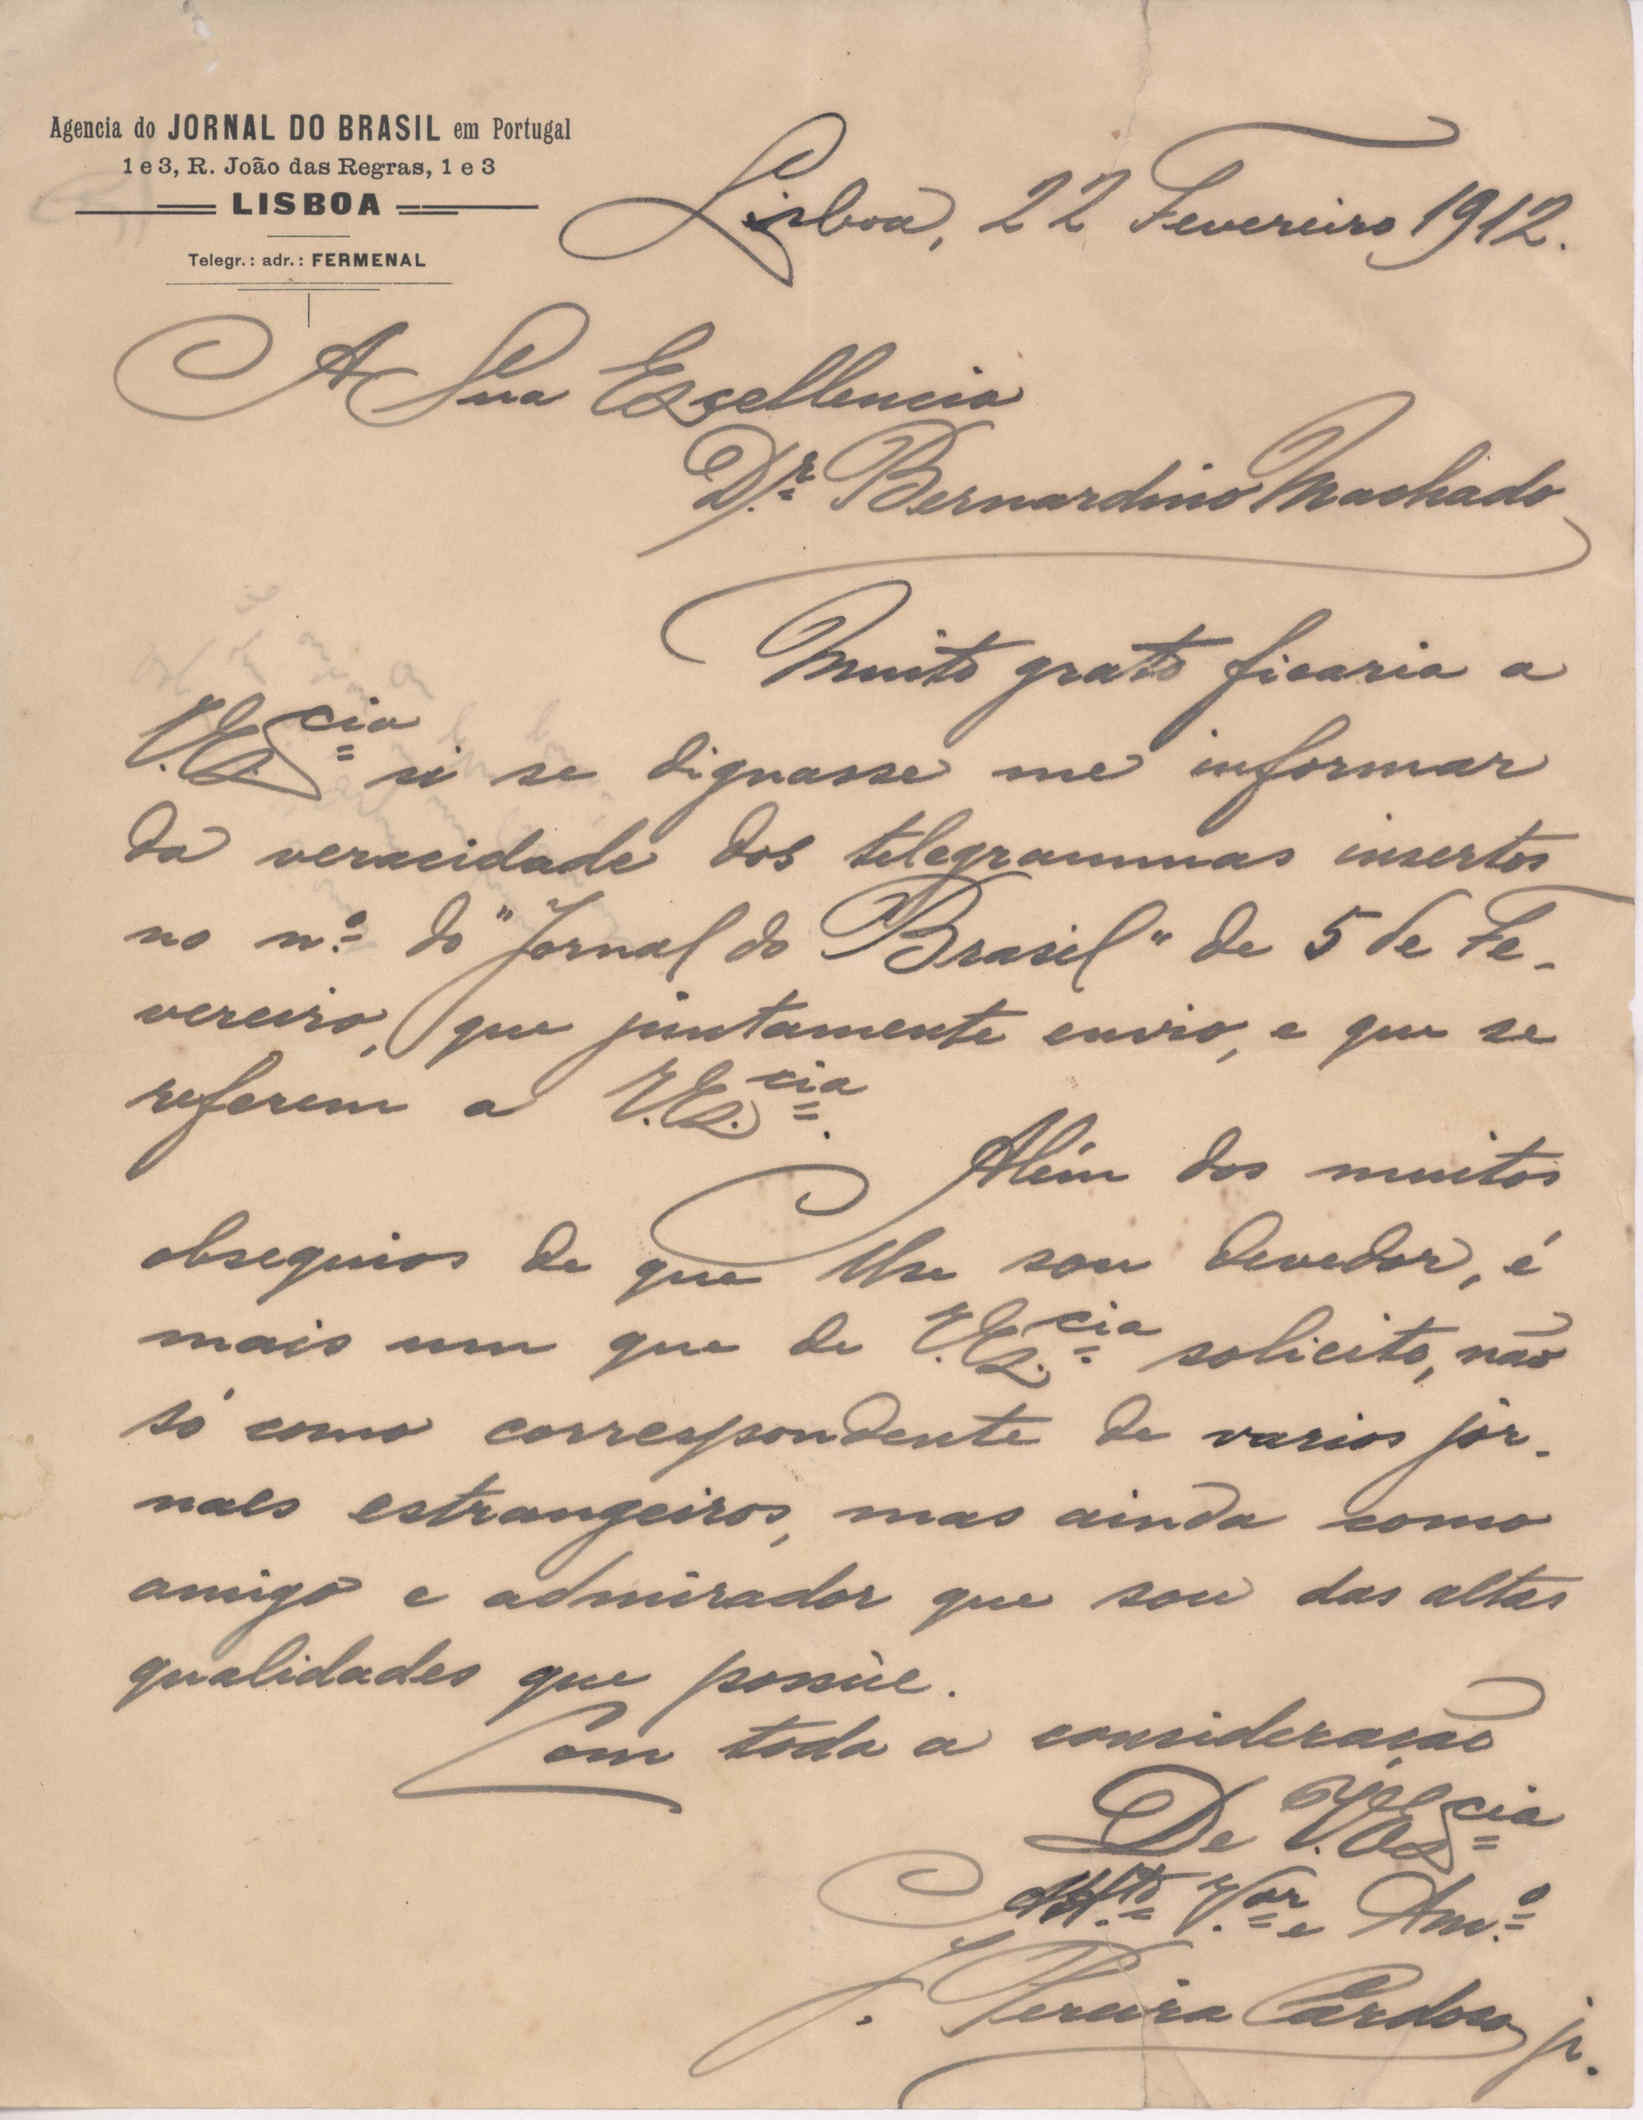 Agencia do JORNAL DO BRASIL em Portugal
1 e 3, R. João das Regras, 1 e 3
LISBOA
Telegr.: adr.: FERMENAL
Lisboa, 22 Fevereiro 1912.
A Sua Excellencia
D.r Bernardino Machado
Muito grato ficaria a
V. Excia si se dignasse me informar
da veracidade dos telegrammas insertos
no n.º do "Jornal do Brasil" de 5 de Fe-
vereiro, que juntamente envio, e que se
referem a V. Ex.cia.
Além dos muitos
obsequios de que lhe sou devedor, é
mais um que de V. Ex.cia solicito, não
só como correspondente de varios jor-
naes estrangeiros, mas ainda como
amigo e admirador que sou das altas
qualidades que possúe.
Com toda a consideração
De V. Excia
Att.to V.or e Am.º
J. Pereira Cardoso jr.